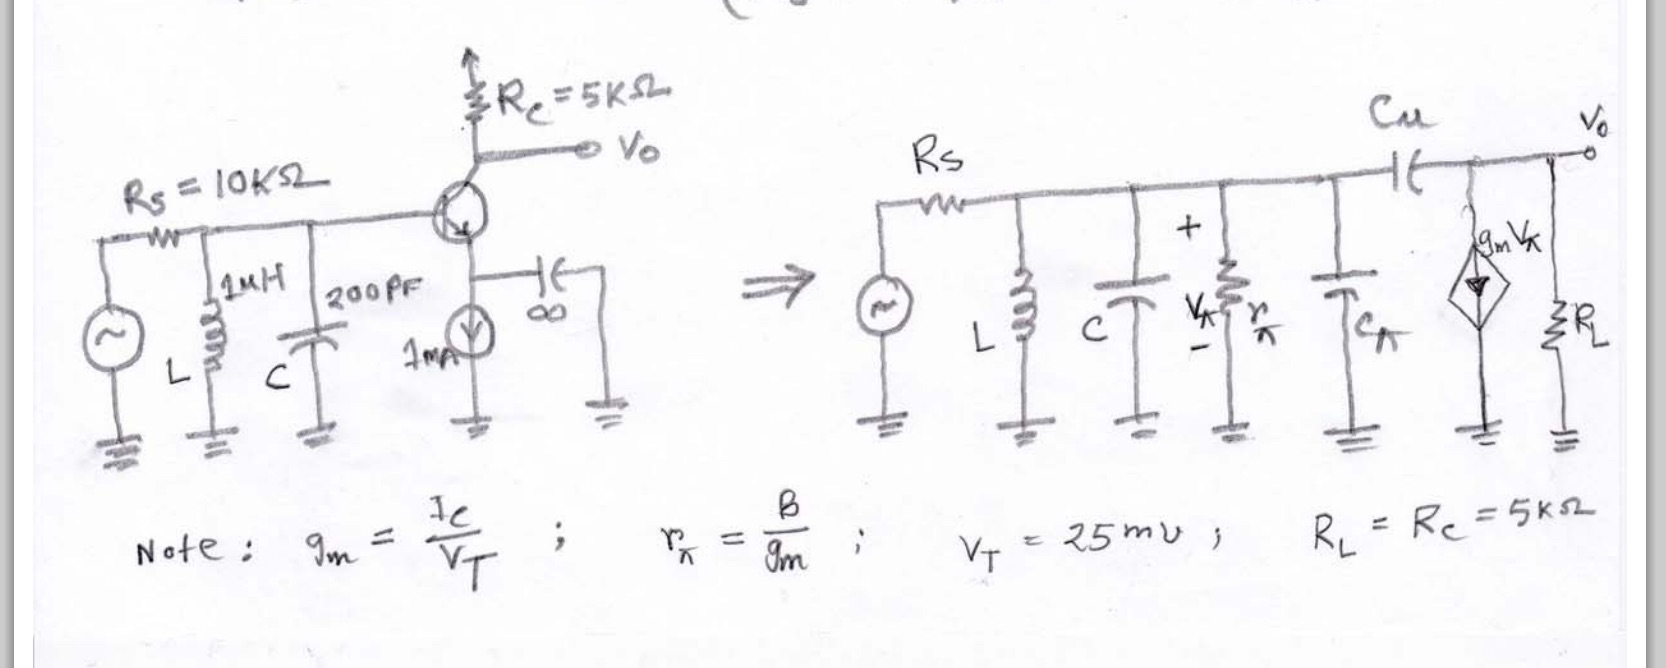 Rc = 5KΩ
Vo
Rs = 10KΩ
1μH
200PF
L
C
1mA
∞
⇒
Rs
Cμ
Vo
+
Vπ
-
rπ
L
C
Cπ
gmVπ
RL
Note: gm = Ic / VT ; rπ = B / gm ; VT = 25mv ; RL = Rc = 5KΩ